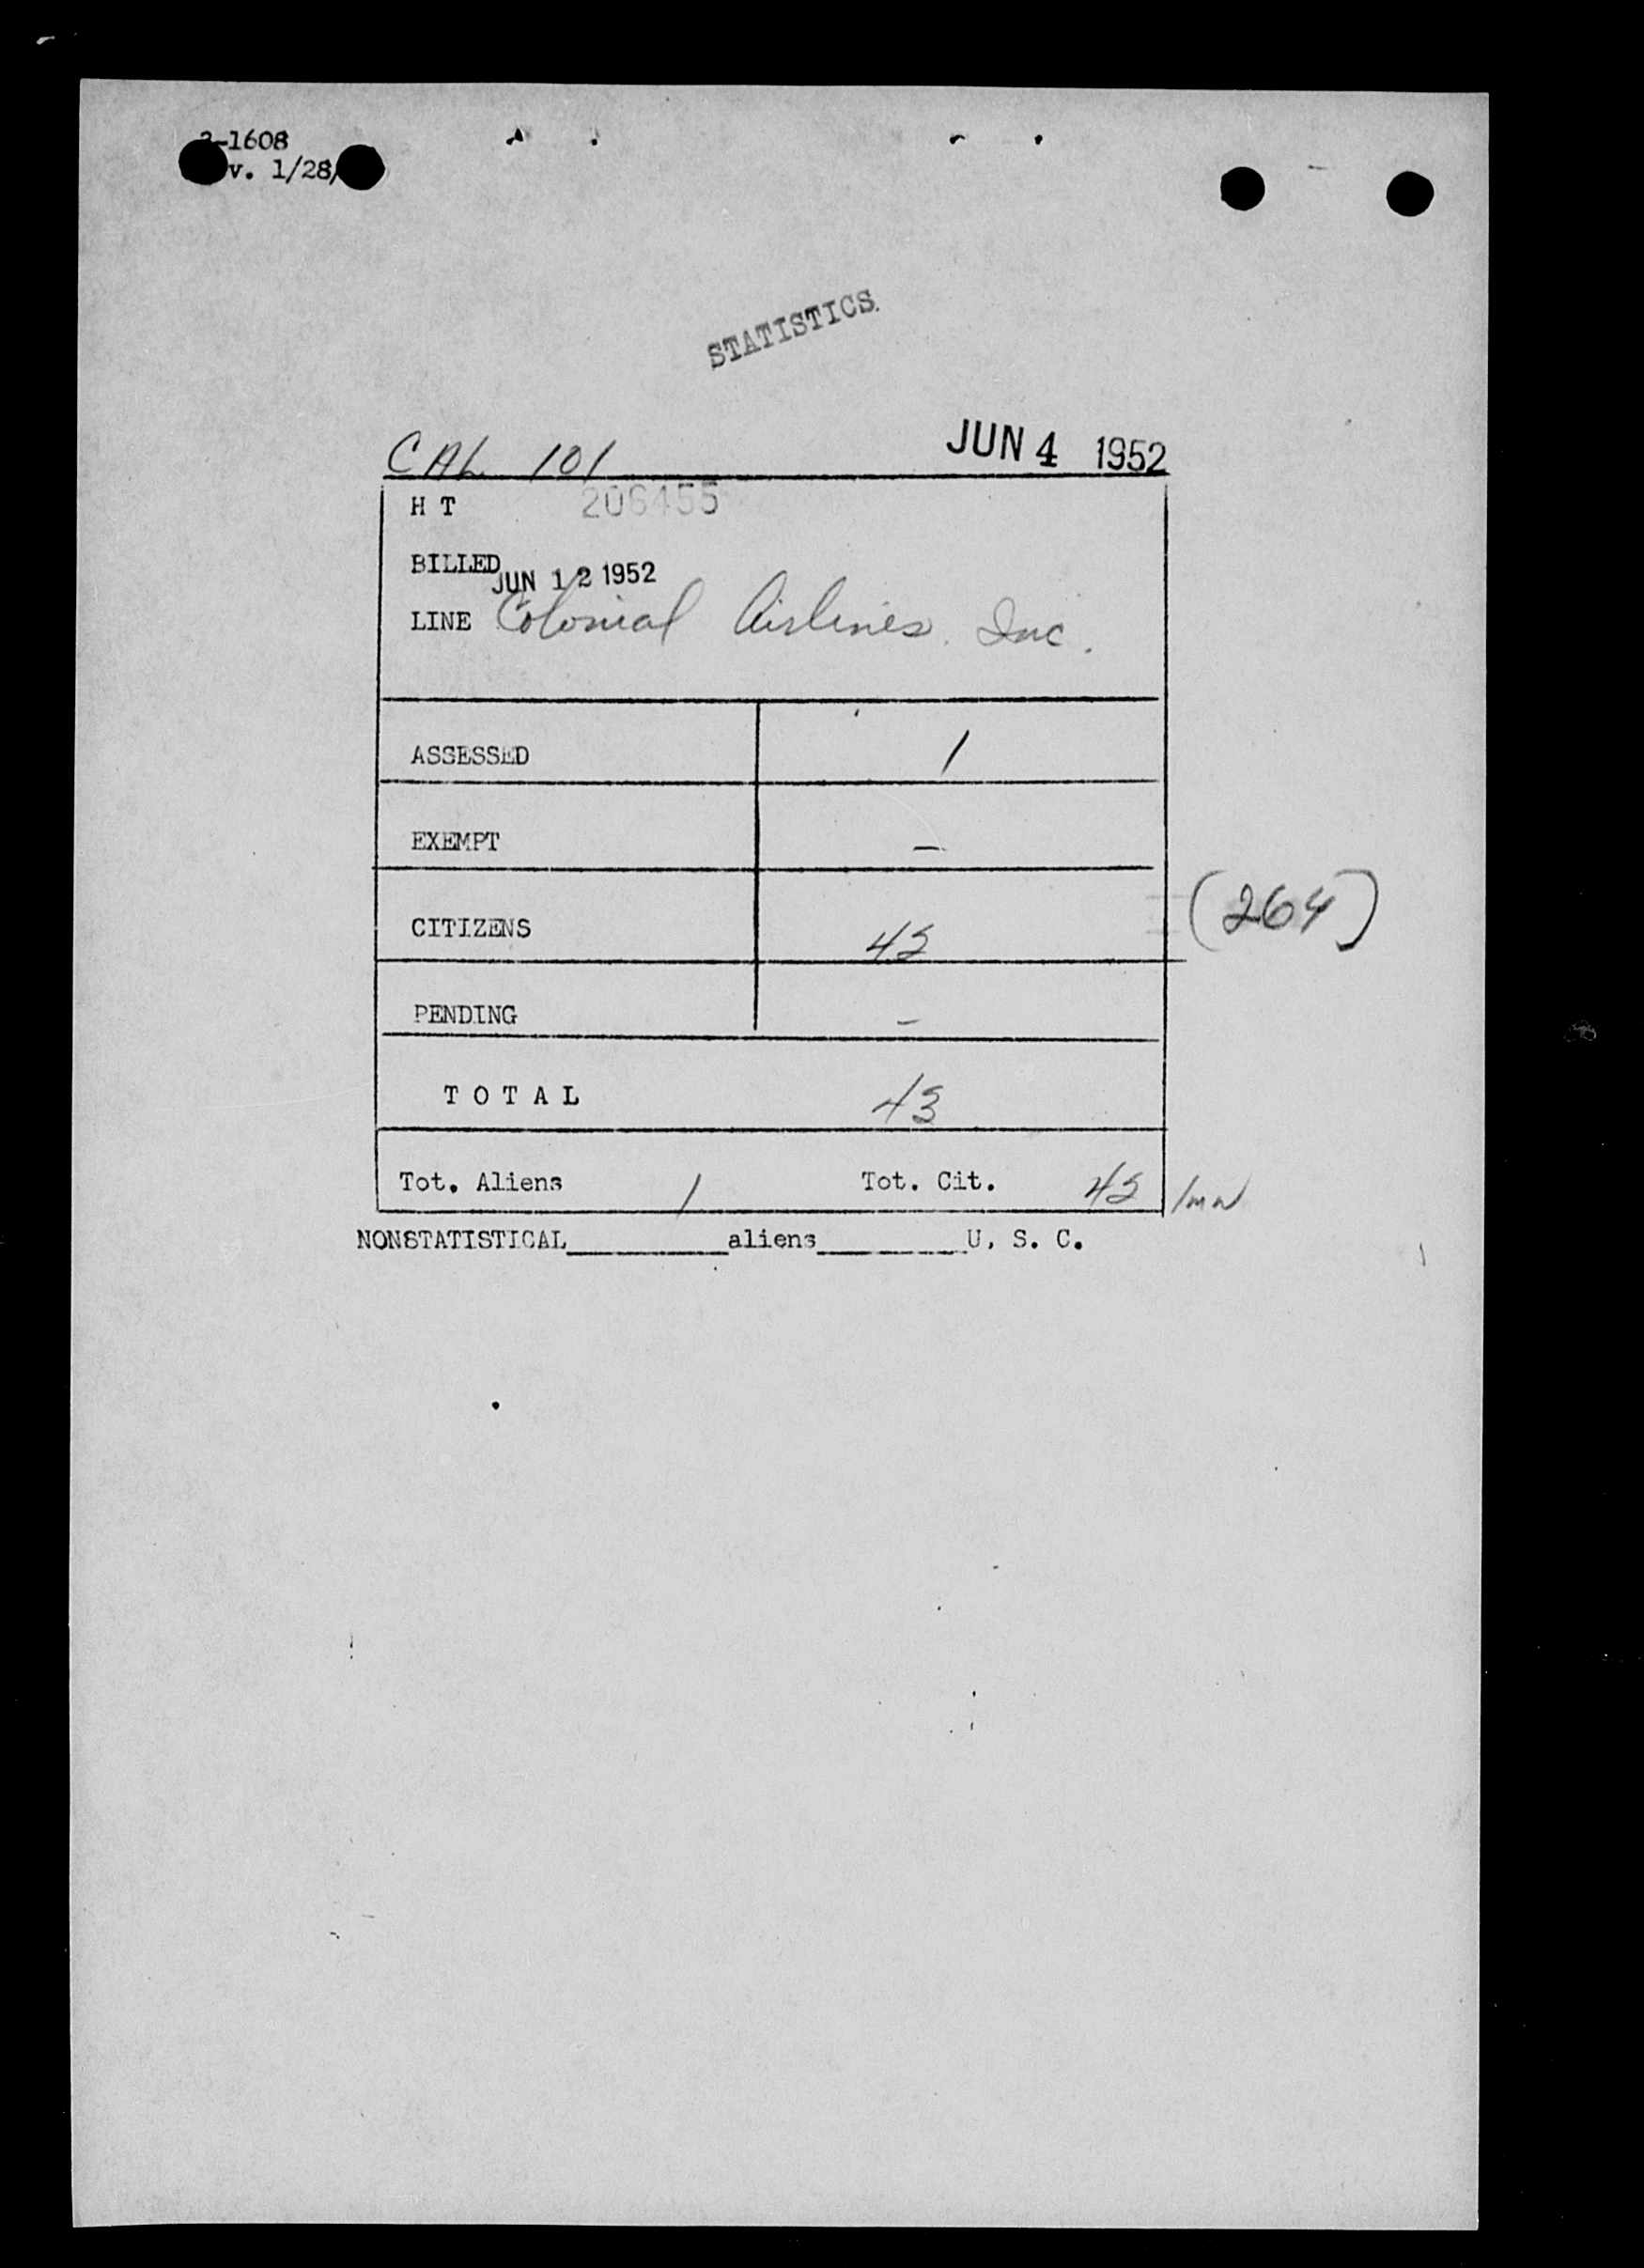 2-1608
v. 1/28/
STATISTICS
CAL 101 JUN 4 1952
H T 206455
BILLED JUN 12 1952
LINE Colonial Airlines. Inc.
ASSESSED 1
EXEMPT –
CITIZENS 42 (264)
PENDING –
T O T A L 43
Tot. Aliens 1 Tot. Cit. 42 /mw
NONSTATISTICAL__________aliens__________U. S. C.